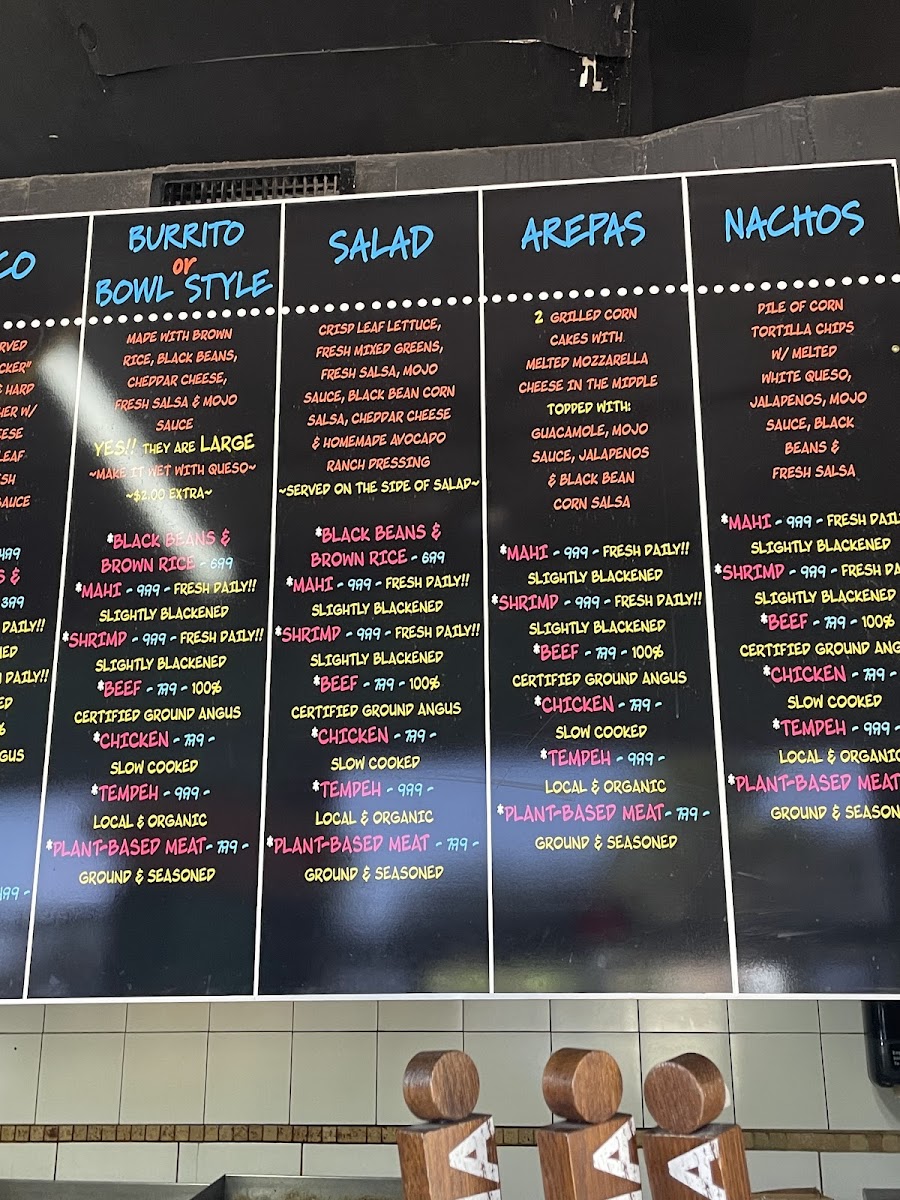 CO
RVED
CKER"
& HARD
HER W/
EESE
LEAF
SH
SAUCE
499
S &
399
DAILY!!
NED
DAILY!!
ED
%
GUS
499 -
BURRITO
or
BOWL STYLE
MADE WITH BROWN
RICE, BLACK BEANS,
CHEDDAR CHEESE,
FRESH SALSA & MOJO
SAUCE
YES!! THEY ARE LARGE
~MAKE IT WET WITH QUESO~
~$2.00 EXTRA~
*BLACK BEANS &
BROWN RICE - 699
*MAHI - 999 - FRESH DAILY!!
SLIGHTLY BLACKENED
*SHRIMP - 999 - FRESH DAILY!!
SLIGHTLY BLACKENED
*BEEF - 799 - 100%
CERTIFIED GROUND ANGUS
*CHICKEN - 799 -
SLOW COOKED
*TEMPEH - 999 -
LOCAL & ORGANIC
*PLANT-BASED MEAT - 799 -
GROUND & SEASONED
SALAD
CRISP LEAF LETTUCE,
FRESH MIXED GREENS,
FRESH SALSA, MOJO
SAUCE, BLACK BEAN CORN
SALSA, CHEDDAR CHEESE
& HOMEMADE AVOCADO
RANCH DRESSING
~SERVED ON THE SIDE OF SALAD~
*BLACK BEANS &
BROWN RICE - 699
*MAHI - 999 - FRESH DAILY!!
SLIGHTLY BLACKENED
*SHRIMP - 999 - FRESH DAILY!!
SLIGHTLY BLACKENED
*BEEF - 799 - 100%
CERTIFIED GROUND ANGUS
*CHICKEN - 799 -
SLOW COOKED
*TEMPEH - 999 -
LOCAL & ORGANIC
*PLANT-BASED MEAT - 799 -
GROUND & SEASONED
AREPAS
2 GRILLED CORN
CAKES WITH
MELTED MOZZARELLA
CHEESE IN THE MIDDLE
TOPPED WITH:
GUACAMOLE, MOJO
SAUCE, JALAPENOS
& BLACK BEAN
CORN SALSA
*MAHI - 999 - FRESH DAILY!!
SLIGHTLY BLACKENED
*SHRIMP - 999 - FRESH DAILY!!
SLIGHTLY BLACKENED
*BEEF - 799 - 100%
CERTIFIED GROUND ANGUS
*CHICKEN - 799 -
SLOW COOKED
*TEMPEH - 999 -
LOCAL & ORGANIC
*PLANT-BASED MEAT - 799 -
GROUND & SEASONED
NACHOS
PILE OF CORN
TORTILLA CHIPS
W/ MELTED
WHITE QUESO,
JALAPENOS, MOJO
SAUCE, BLACK
BEANS &
FRESH SALSA
*MAHI - 999 - FRESH DAIL
SLIGHTLY BLACKENED
*SHRIMP - 999 - FRESH DA
SLIGHTLY BLACKENED
*BEEF - 799 - 100%
CERTIFIED GROUND ANG
*CHICKEN - 799 -
SLOW COOKED
*TEMPEH - 999 -
LOCAL & ORGANIC
*PLANT-BASED MEAT
GROUND & SEASON
A
A
A